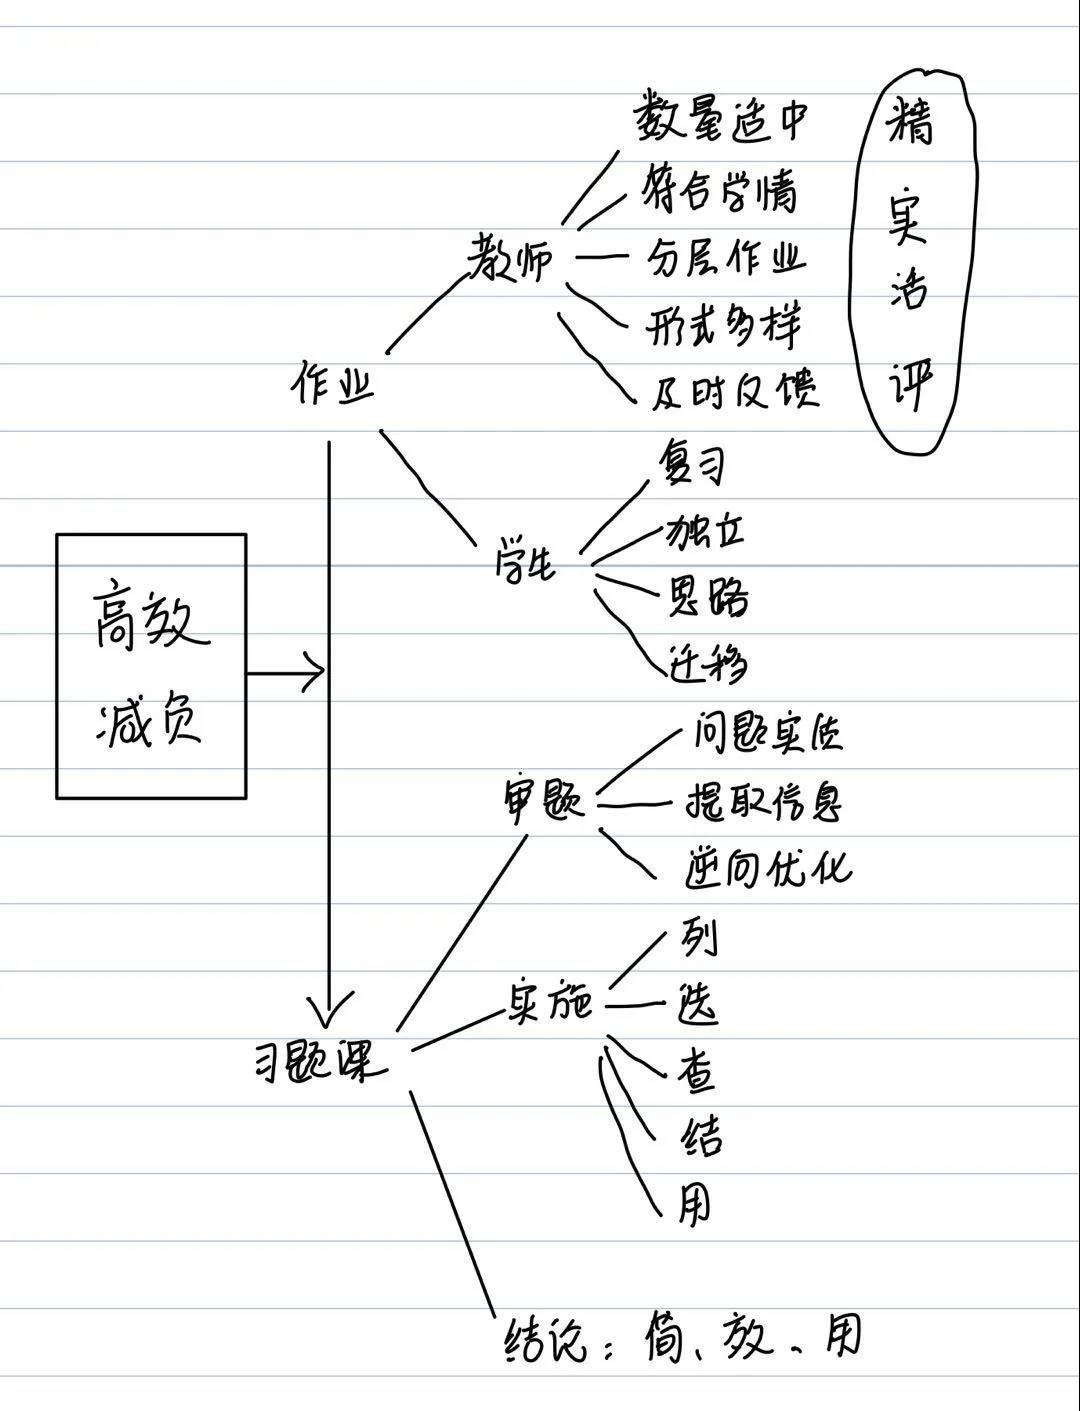 数量适中
符合学情
教师
分层作业
形式多样
及时反馈
精
实
活
评
作业
复习
学生
独立
思路
迁移
高效
减负
审题
问题实质
提取信息
逆向优化
实施
列
迭
查
结
用
习题课
结论：简、效、用